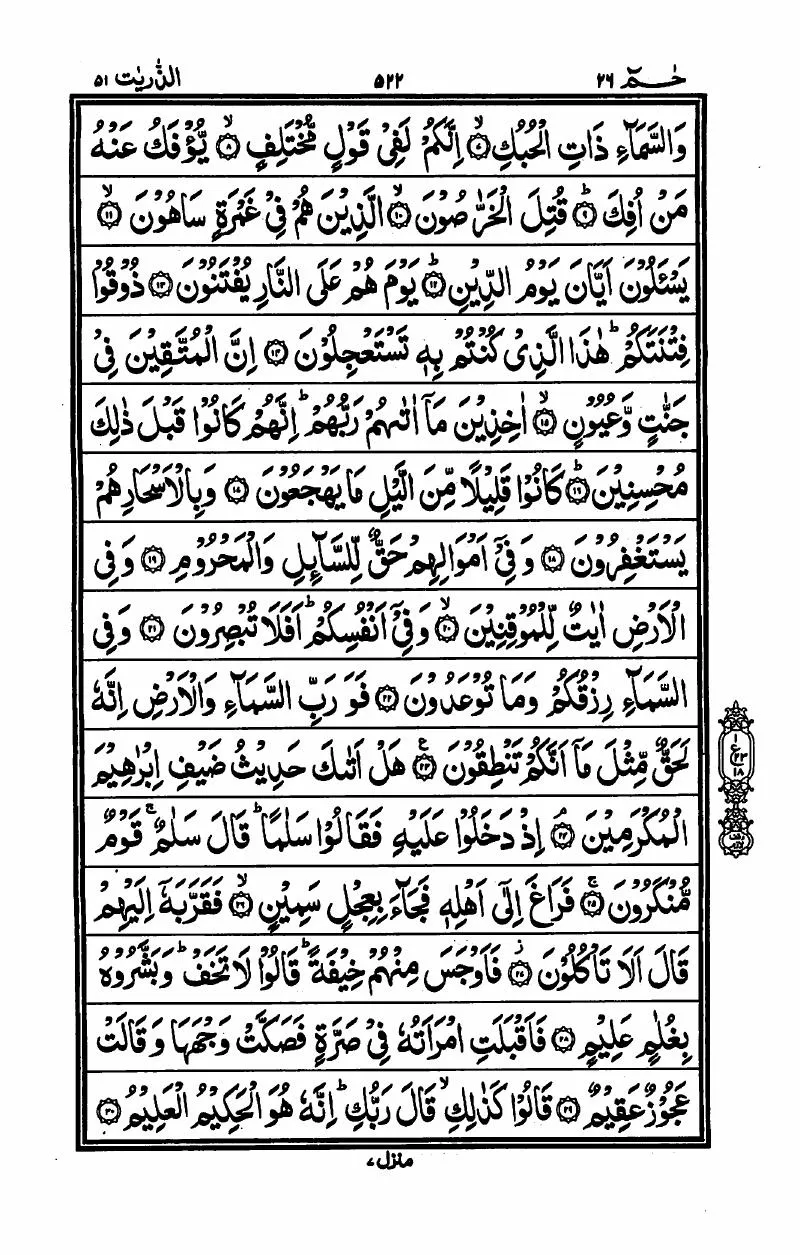 حٰمٓ ٢٦ ٥٢٢ الذّٰریٰت ٥١
وَالسَّمَآءِ ذَاتِ الْحُبُكِ ۙ﴿٧﴾ اِنَّكُمْ لَفِیْ قَوْلٍ مُّخْتَلِفٍ ۙ﴿٨﴾ یُّؤْفَكُ عَنْهُ
مَنْ اُفِكَ ؕ﴿٩﴾ قُتِلَ الْخَرّٰصُوْنَ ۙ﴿١٠﴾ الَّذِیْنَ هُمْ فِیْ غَمْرَةٍ سَاهُوْنَ ۙ﴿١١﴾
یَسْـَٔلُوْنَ اَیَّانَ یَوْمُ الدِّیْنِ ؕ﴿١٢﴾ یَوْمَ هُمْ عَلَی النَّارِ یُفْتَنُوْنَ ﴿١٣﴾ ذُوْقُوْا
فِتْنَتَكُمْ ؕ هٰذَا الَّذِیْ كُنْتُمْ بِهٖ تَسْتَعْجِلُوْنَ ﴿١٤﴾ اِنَّ الْمُتَّقِیْنَ فِیْ
جَنّٰتٍ وَّعُیُوْنٍ ۙ﴿١٥﴾ اٰخِذِیْنَ مَاۤ اٰتٰىهُمْ رَبُّهُمْ ؕ اِنَّهُمْ كَانُوْا قَبْلَ ذٰلِكَ
مُحْسِنِیْنَ ؕ﴿١٦﴾ كَانُوْا قَلِیْلًا مِّنَ الَّیْلِ مَا یَهْجَعُوْنَ ﴿١٧﴾ وَبِالْاَسْحَارِ هُمْ
یَسْتَغْفِرُوْنَ ﴿١٨﴾ وَفِیْۤ اَمْوَالِهِمْ حَقٌّ لِّلسَّآىِٕلِ وَالْمَحْرُوْمِ ﴿١٩﴾ وَفِی
الْاَرْضِ اٰیٰتٌ لِّلْمُوْقِنِیْنَ ۙ﴿٢٠﴾ وَفِیْۤ اَنْفُسِكُمْ ؕ اَفَلَا تُبْصِرُوْنَ ﴿٢١﴾ وَفِی
السَّمَآءِ رِزْقُكُمْ وَمَا تُوْعَدُوْنَ ﴿٢٢﴾ فَوَ رَبِّ السَّمَآءِ وَالْاَرْضِ اِنَّهٗ
لَحَقٌّ مِّثْلَ مَاۤ اَنَّكُمْ تَنْطِقُوْنَ ﴿٢٣﴾ هَلْ اَتٰىكَ حَدِیْثُ ضَیْفِ اِبْرٰهِیْمَ
الْمُكْرَمِیْنَ ۘ﴿٢٤﴾ اِذْ دَخَلُوْا عَلَیْهِ فَقَالُوْا سَلٰمًا ؕ قَالَ سَلٰمٌ ۚ قَوْمٌ
مُّنْكَرُوْنَ ۚ﴿٢٥﴾ فَرَاغَ اِلٰۤی اَهْلِهٖ فَجَآءَ بِعِجْلٍ سَمِیْنٍ ۙ﴿٢٦﴾ فَقَرَّبَهٗۤ اِلَیْهِمْ
قَالَ اَلَا تَاْكُلُوْنَ ﴿٢٧﴾ فَاَوْجَسَ مِنْهُمْ خِیْفَةً ؕ قَالُوْا لَا تَخَفْ ؕ وَبَشَّرُوْهُ
بِغُلٰمٍ عَلِیْمٍ ﴿٢٨﴾ فَاَقْبَلَتِ امْرَاَتُهٗ فِیْ صَرَّةٍ فَصَكَّتْ وَجْهَهَا وَقَالَتْ
عَجُوْزٌ عَقِیْمٌ ﴿٢٩﴾ قَالُوْا كَذٰلِكِ ۙ قَالَ رَبُّكِ ؕ اِنَّهٗ هُوَ الْحَكِیْمُ الْعَلِیْمُ ﴿٣٠﴾
منزل ٧